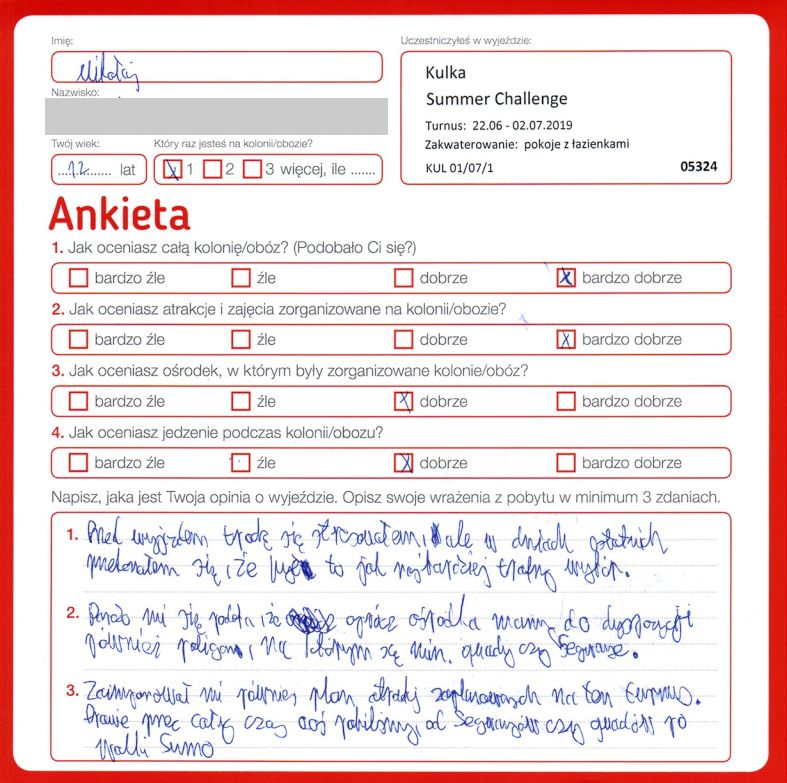 Imię:
Mikołaj
Nazwisko:
Twój wiek:
12 lat
Który raz jesteś na kolonii/obozie?
1 2 3 więcej, ile .......
Uczestniczyłeś w wyjeździe:
Kulka
Summer Challenge
Turnus: 22.06 - 02.07.2019
Zakwaterowanie: pokoje z łazienkami
KUL 01/07/1 05324
Ankieta
1. Jak oceniasz całą kolonię/obóz? (Podobało Ci się?)
bardzo źle źle dobrze bardzo dobrze
2. Jak oceniasz atrakcje i zajęcia zorganizowane na kolonii/obozie?
bardzo źle źle dobrze bardzo dobrze
3. Jak oceniasz ośrodek, w którym były zorganizowane kolonie/obóz?
bardzo źle źle dobrze bardzo dobrze
4. Jak oceniasz jedzenie podczas kolonii/obozu?
bardzo źle źle dobrze bardzo dobrze
Napisz, jaka jest Twoja opinia o wyjeździe. Opisz swoje wrażenia z pobytu w minimum 3 zdaniach.
1. Przed wyjazdem trochę się stresowałem, ale w dniach ostatnich
przekonałem się, że był to jak najbardziej trafny wybór.
2. Bardzo mi się podoba, że oprócz ośrodka mamy do dyspozycji
również poligon, na którym są min. quady czy Segwaye.
3. Zaimponował mi również plan atrakcji zaplanowanych na ten turnus.
Prawie przez cały czas coś robiliśmy, od Segwayów czy quadów po
walki Sumo